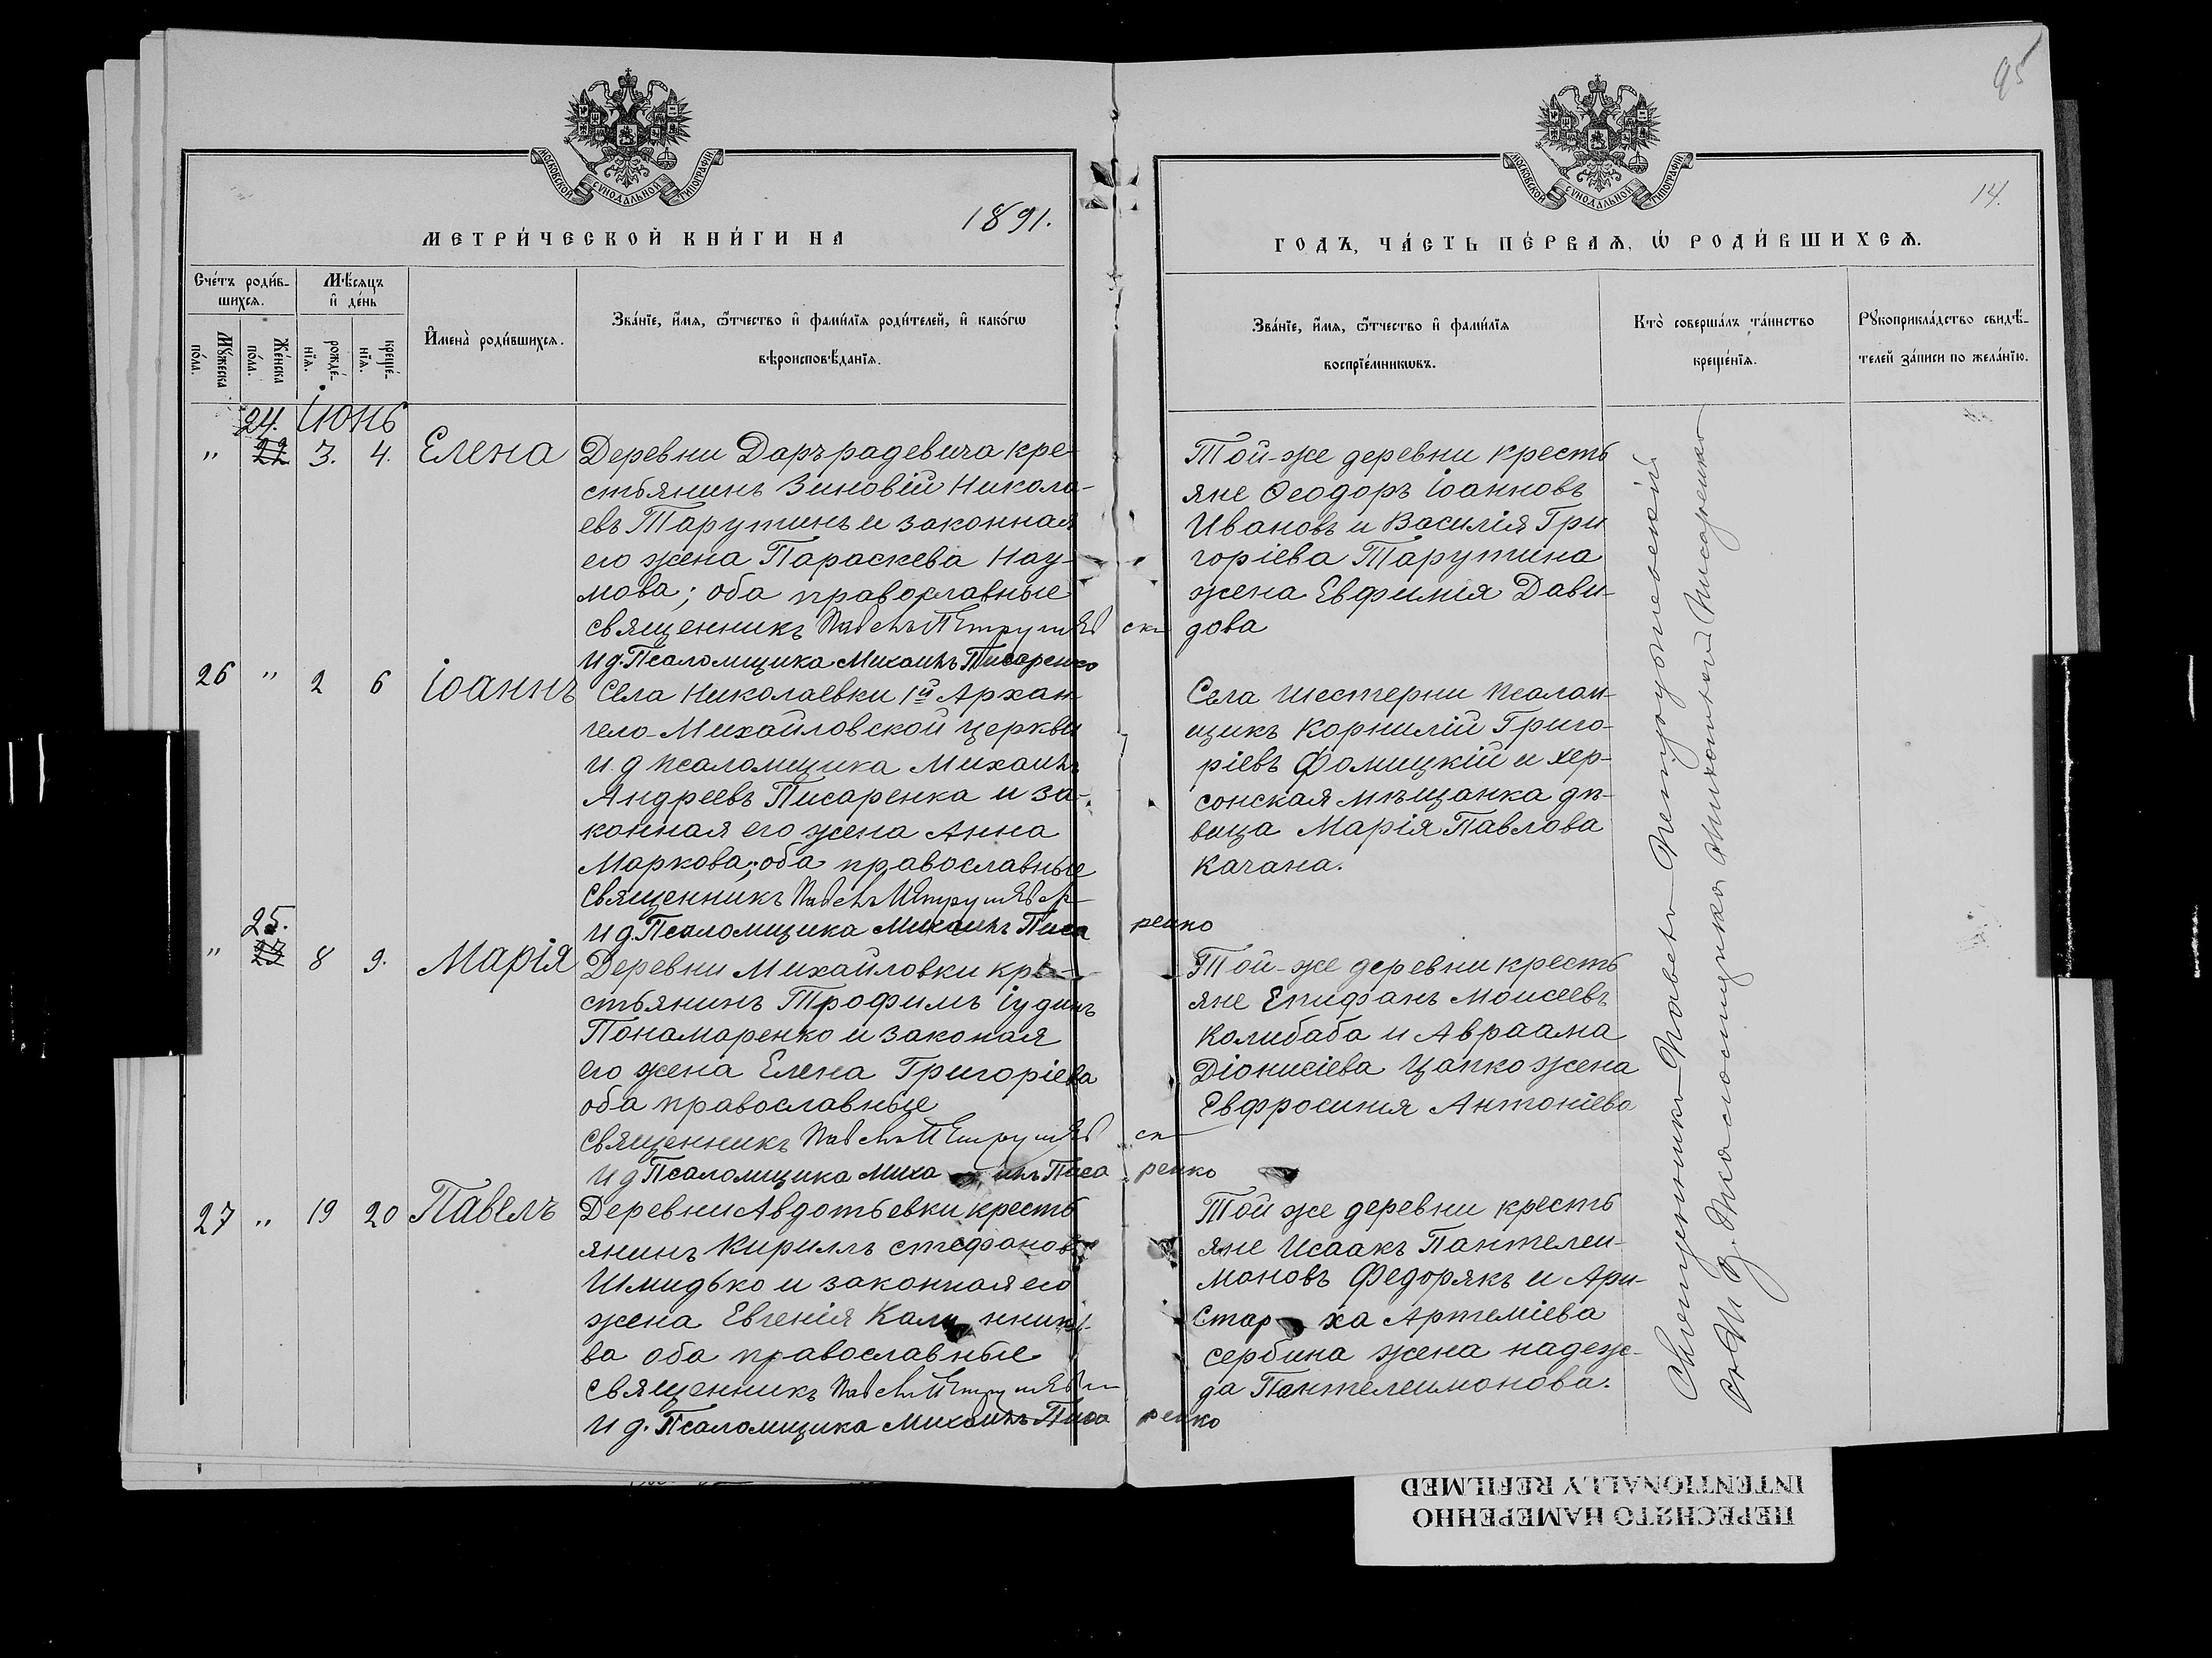 95
МОСКОВСКОЙ СѴНОДАЛЬНОЙ ТИПОГРАФІИ
МОСКОВСКОЙ СѴНОДАЛЬНОЙ ТИПОГРАФІИ
14.
МЕТРИ́ЧЕСКОЙ КНИ́ГИ НА 1891.
ГОДЪ, ЧА́СТЬ ПЕ́РВАѦ, Ѡ҆ РОДИ́ВШИХСѦ.
Сче́тъ роди́в-
шихсѧ.
Мꙋ́жеска по́ла.
Же́нска по́ла.
Мѣ́сѧцъ
и҆ де́нь
рожде́-
нїѧ.
креще́-
нїѧ.
И҆мена̀ роди́вшихсѧ.
Зва́нїе, и҆́мѧ, ѻ҆́тчество и҆ фами́лїѧ роди́телей, и҆ како́гѡ
вѣроисповѣ́данїѧ.
Зва́нїе, и҆́мѧ, ѻ҆́тчество и҆ фами́лїѧ
воспрїе́мникѡвъ.
Кто̀ соверша́лъ та́инство
креще́нїѧ.
Рꙋкоприкла́дство свидѣ́-
телей за́писи по жела́нїю.
Іюнь
" 24. 22 3. 4. Елена
Деревни Даръ радевича кре-
стьянинъ Зиновій Никола-
евъ Тарутинъ и законная
его жена Параскева Нау-
мова; оба православные
священникъ Павелъ Петрушевск
И д. Псаломщика Михаилъ Писаренко
Той-же деревни кресть
яне Ѳеодоръ Іоанновъ
Ивановъ и Василія Гри
горіева Тарутина
жена Евфимія Дави-
дова
26 " 2 6 Іоаннъ
Села Николаевки 1й Архан
гело-Михайловской церкви
и. д псаломщика Михаилъ
Андреевъ Писаренка и за-
конная его жена Анна
Маркова; оба православные
Священникъ Павелъ Петрушевск
И д. Псаломщика Михаилъ Писаренко
Села Шестерни псалом
щикъ Корнилій Григо-
ріевъ Фомицкій и хер-
сонская мѣщанка дѣ-
вица Марія Павлова
Качана.
" 25. 23 8 9. Марія
Деревни Михайловки кре-
стьянинъ Трофимъ Іудинъ
Пономаренко и законая
его жена Елена Григоріева
оба православные
Священникъ Павелъ Петрушевск
И д Псаломщика Михаилъ Писаренко
Той-же деревни кресть
яне Епифанъ Моисеевъ
Колибаба и Авраама
Діонисіева Цапко жена
Евфросинія Антоніева
27 " 19 20 Павелъ
Деревни Авдотьевки кресть
янинъ Кириллъ Стефановъ
Шмидько и законная его
жена Евгенія Калинникова
ва оба православные
Священникъ Павелъ Петрушевск
И д. Псаломщика Михаилъ Писаренко
Той же деревни кресть
яне Исаакъ Пантелеи-
моновъ Федорякъ и Ари-
стар ха Артеміева
Сербина жена Надеж-
да Пантелеимонова.
Священникъ Павелъ Петрушевскій
съ И д. Псаломщика Михаиломъ Писаренко
ПЕРЕСНЯТО НАМЕРЕННО
INTENTIONALLY REFILMED